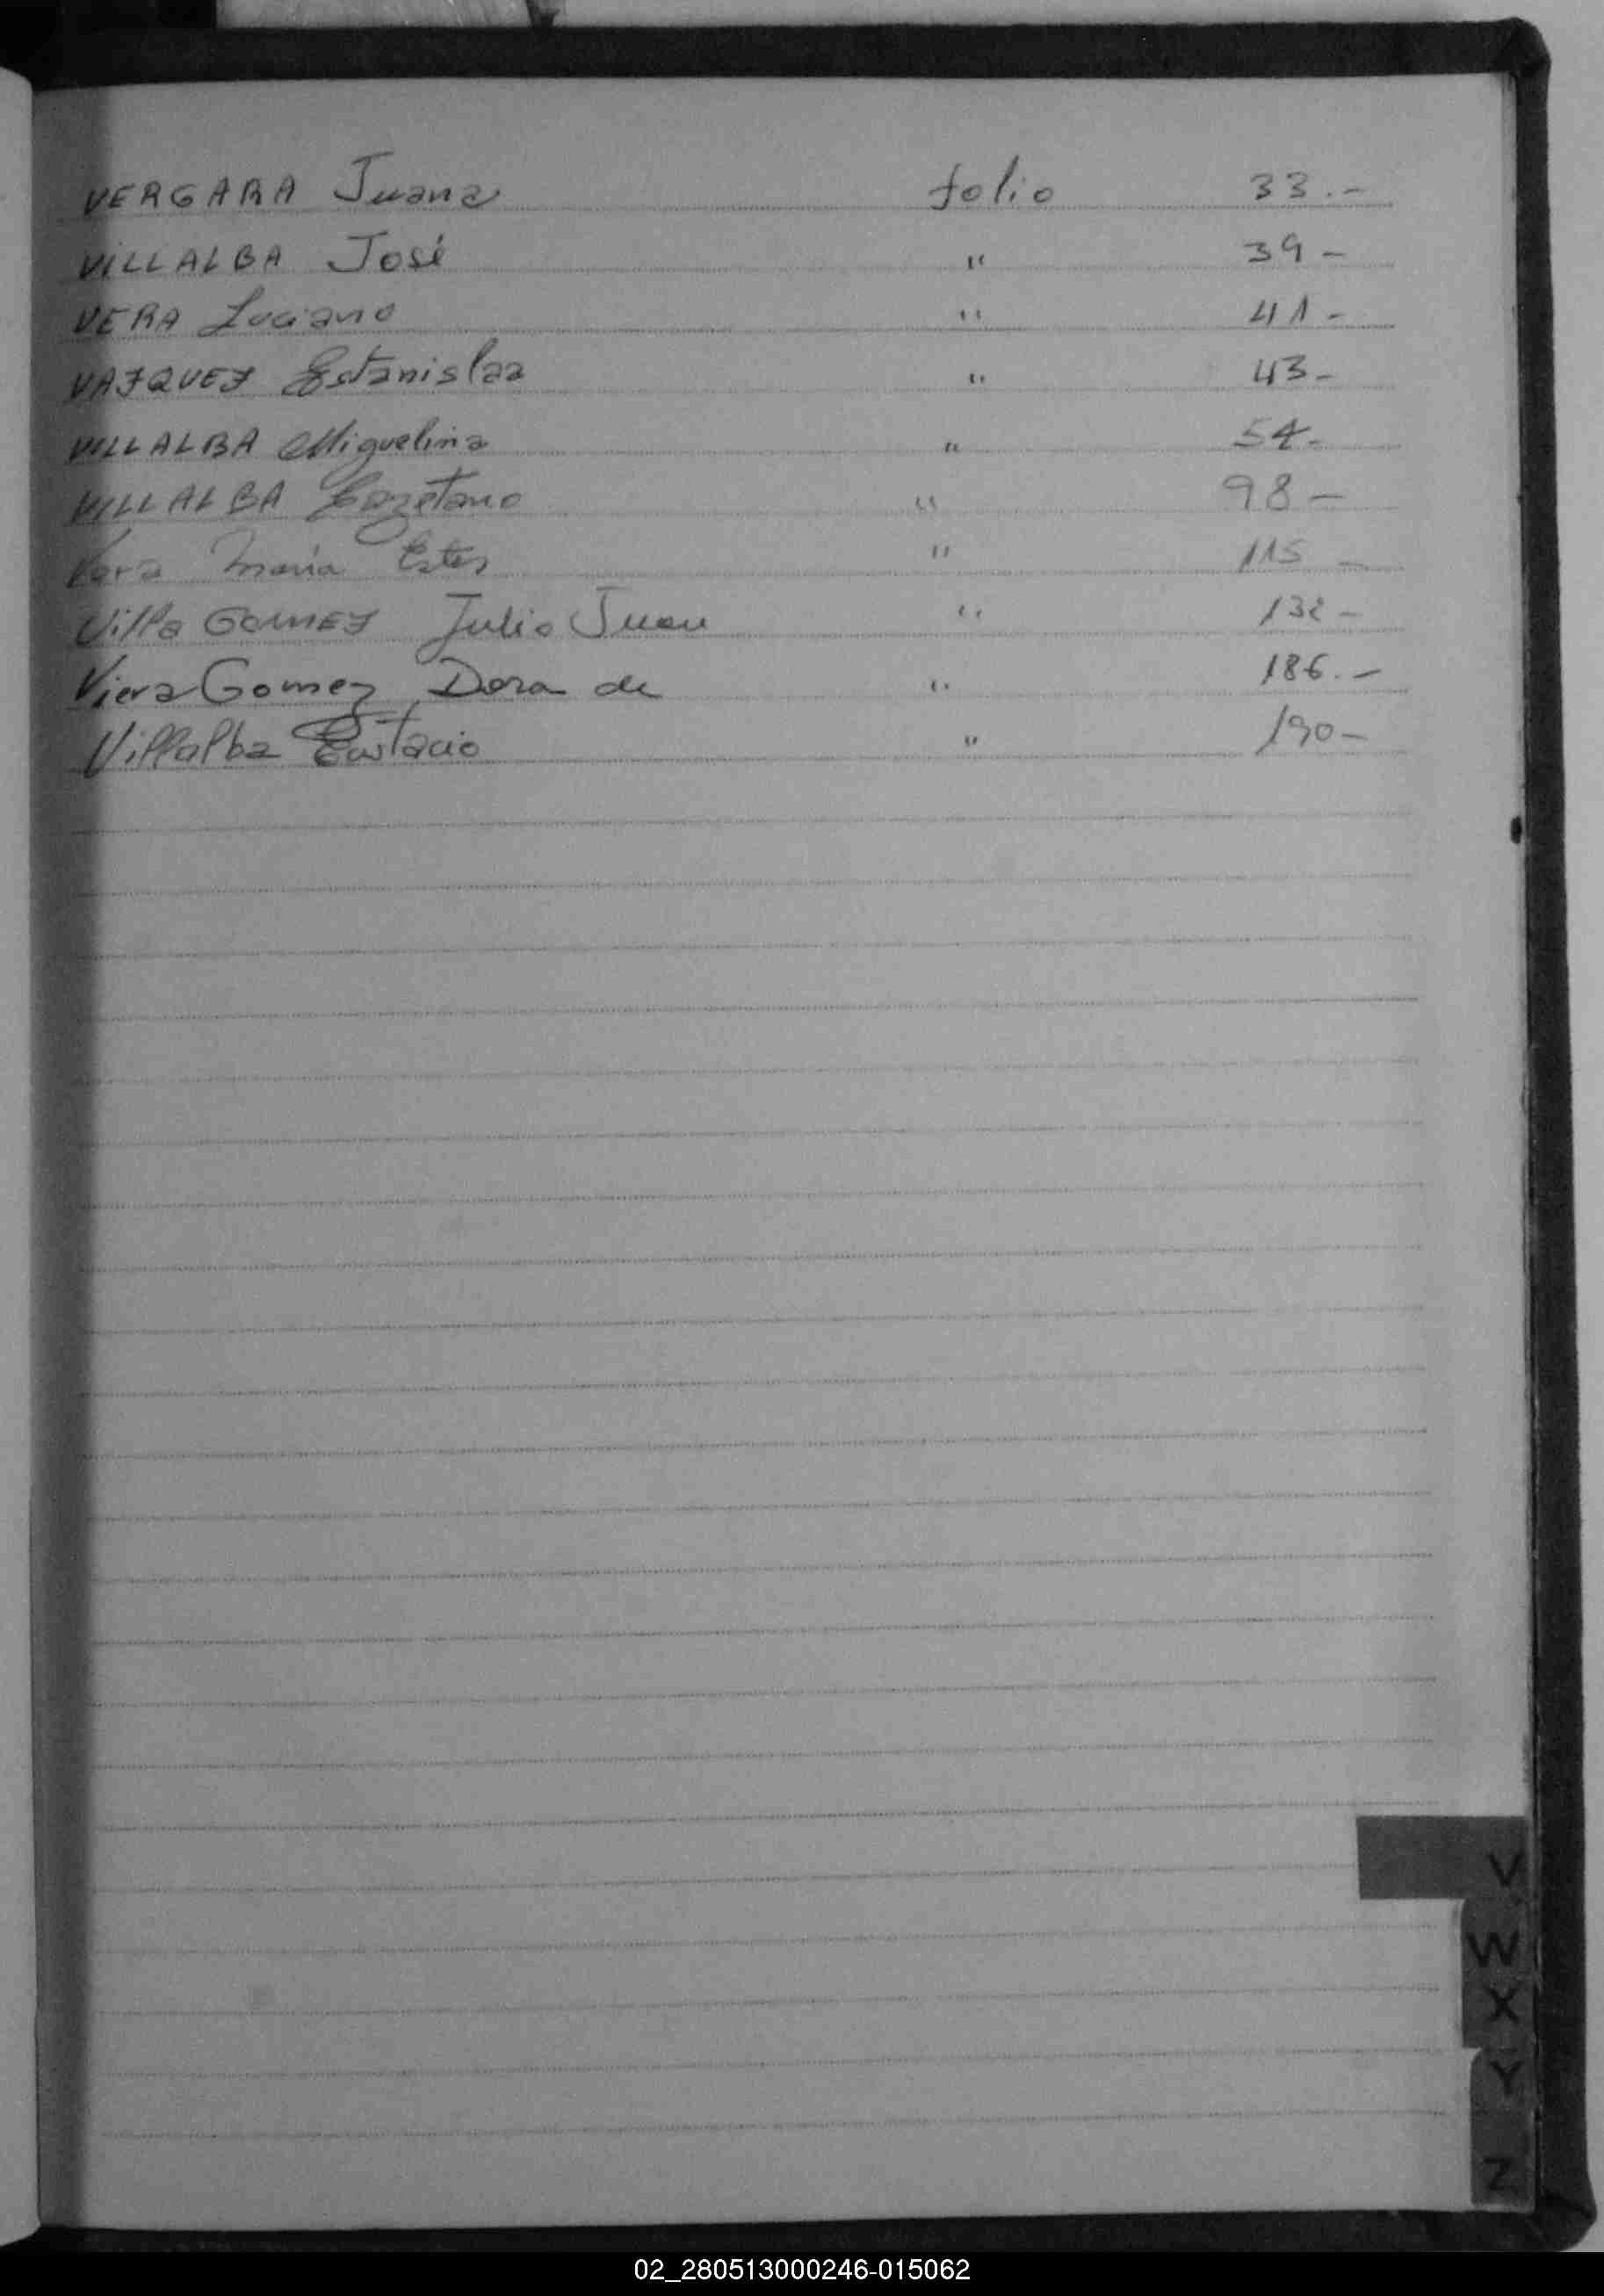 VERGARA Juana folio 33.-
VILLALBA José " 39-
VERA Luciano " 41-
VAZQUEZ Estanislaa " 43-
VILLALBA Miguelina " 54-
VILLALBA Cayetano " 98-
Vera María Ester " 115-
Villa GOMEZ Julio Juan " 132-
Viera Gomez Dora de " 186.-
Villalba Eustacio " 190-
V
W
X
Y
Z
02_280513000246-015062